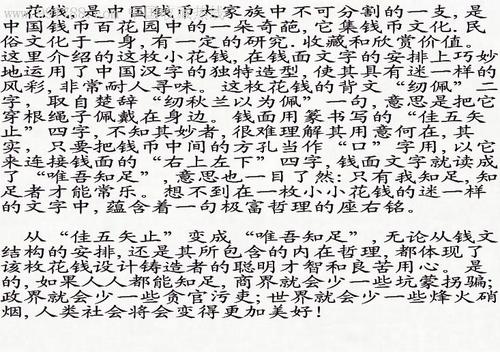 花钱,是中国钱币大家族中不可分割的一支,是
中国钱币百花园中的一朵奇葩,它集钱币文化.民
俗文化于一身,有一定的研究.收藏和欣赏价值。
这里介绍的这枚小花钱,在钱面文字的安排上巧妙
地运用了中国汉字的独特造型,使其具有迷一样的
风彩,非常耐人寻味。这枚花钱的背文“纫佩”二
字,取自楚辞“纫秋兰以为佩”一句,意思是把它
穿根绳子佩戴在身边。钱面用篆书写的“佳五矢
止”四字,不知其妙者,很难理解其用意何在,其
实,只要把钱币中间的方孔当作“口”字用,以它
来连接钱面的“右上左下”四字,钱面文字就读成
了“唯吾知足”,意思也一目了然:只有我知足,知
足者才能常乐。想不到在一枚小小花钱的迷一样
的文字中,蕴含着一句极富哲理的座右铭。
从“佳五矢止”变成“唯吾知足”,无论从钱文
结构的安排,还是其所包含的内在哲理,都体现了
该枚花钱设计铸造者的聪明才智和良苦用心。是
的,如果人人都能知足,商界就会少一些坑蒙拐骗;
政界就会少一些贪官污吏;世界就会少一些烽火硝
烟,人类社会将会变得更加美好!